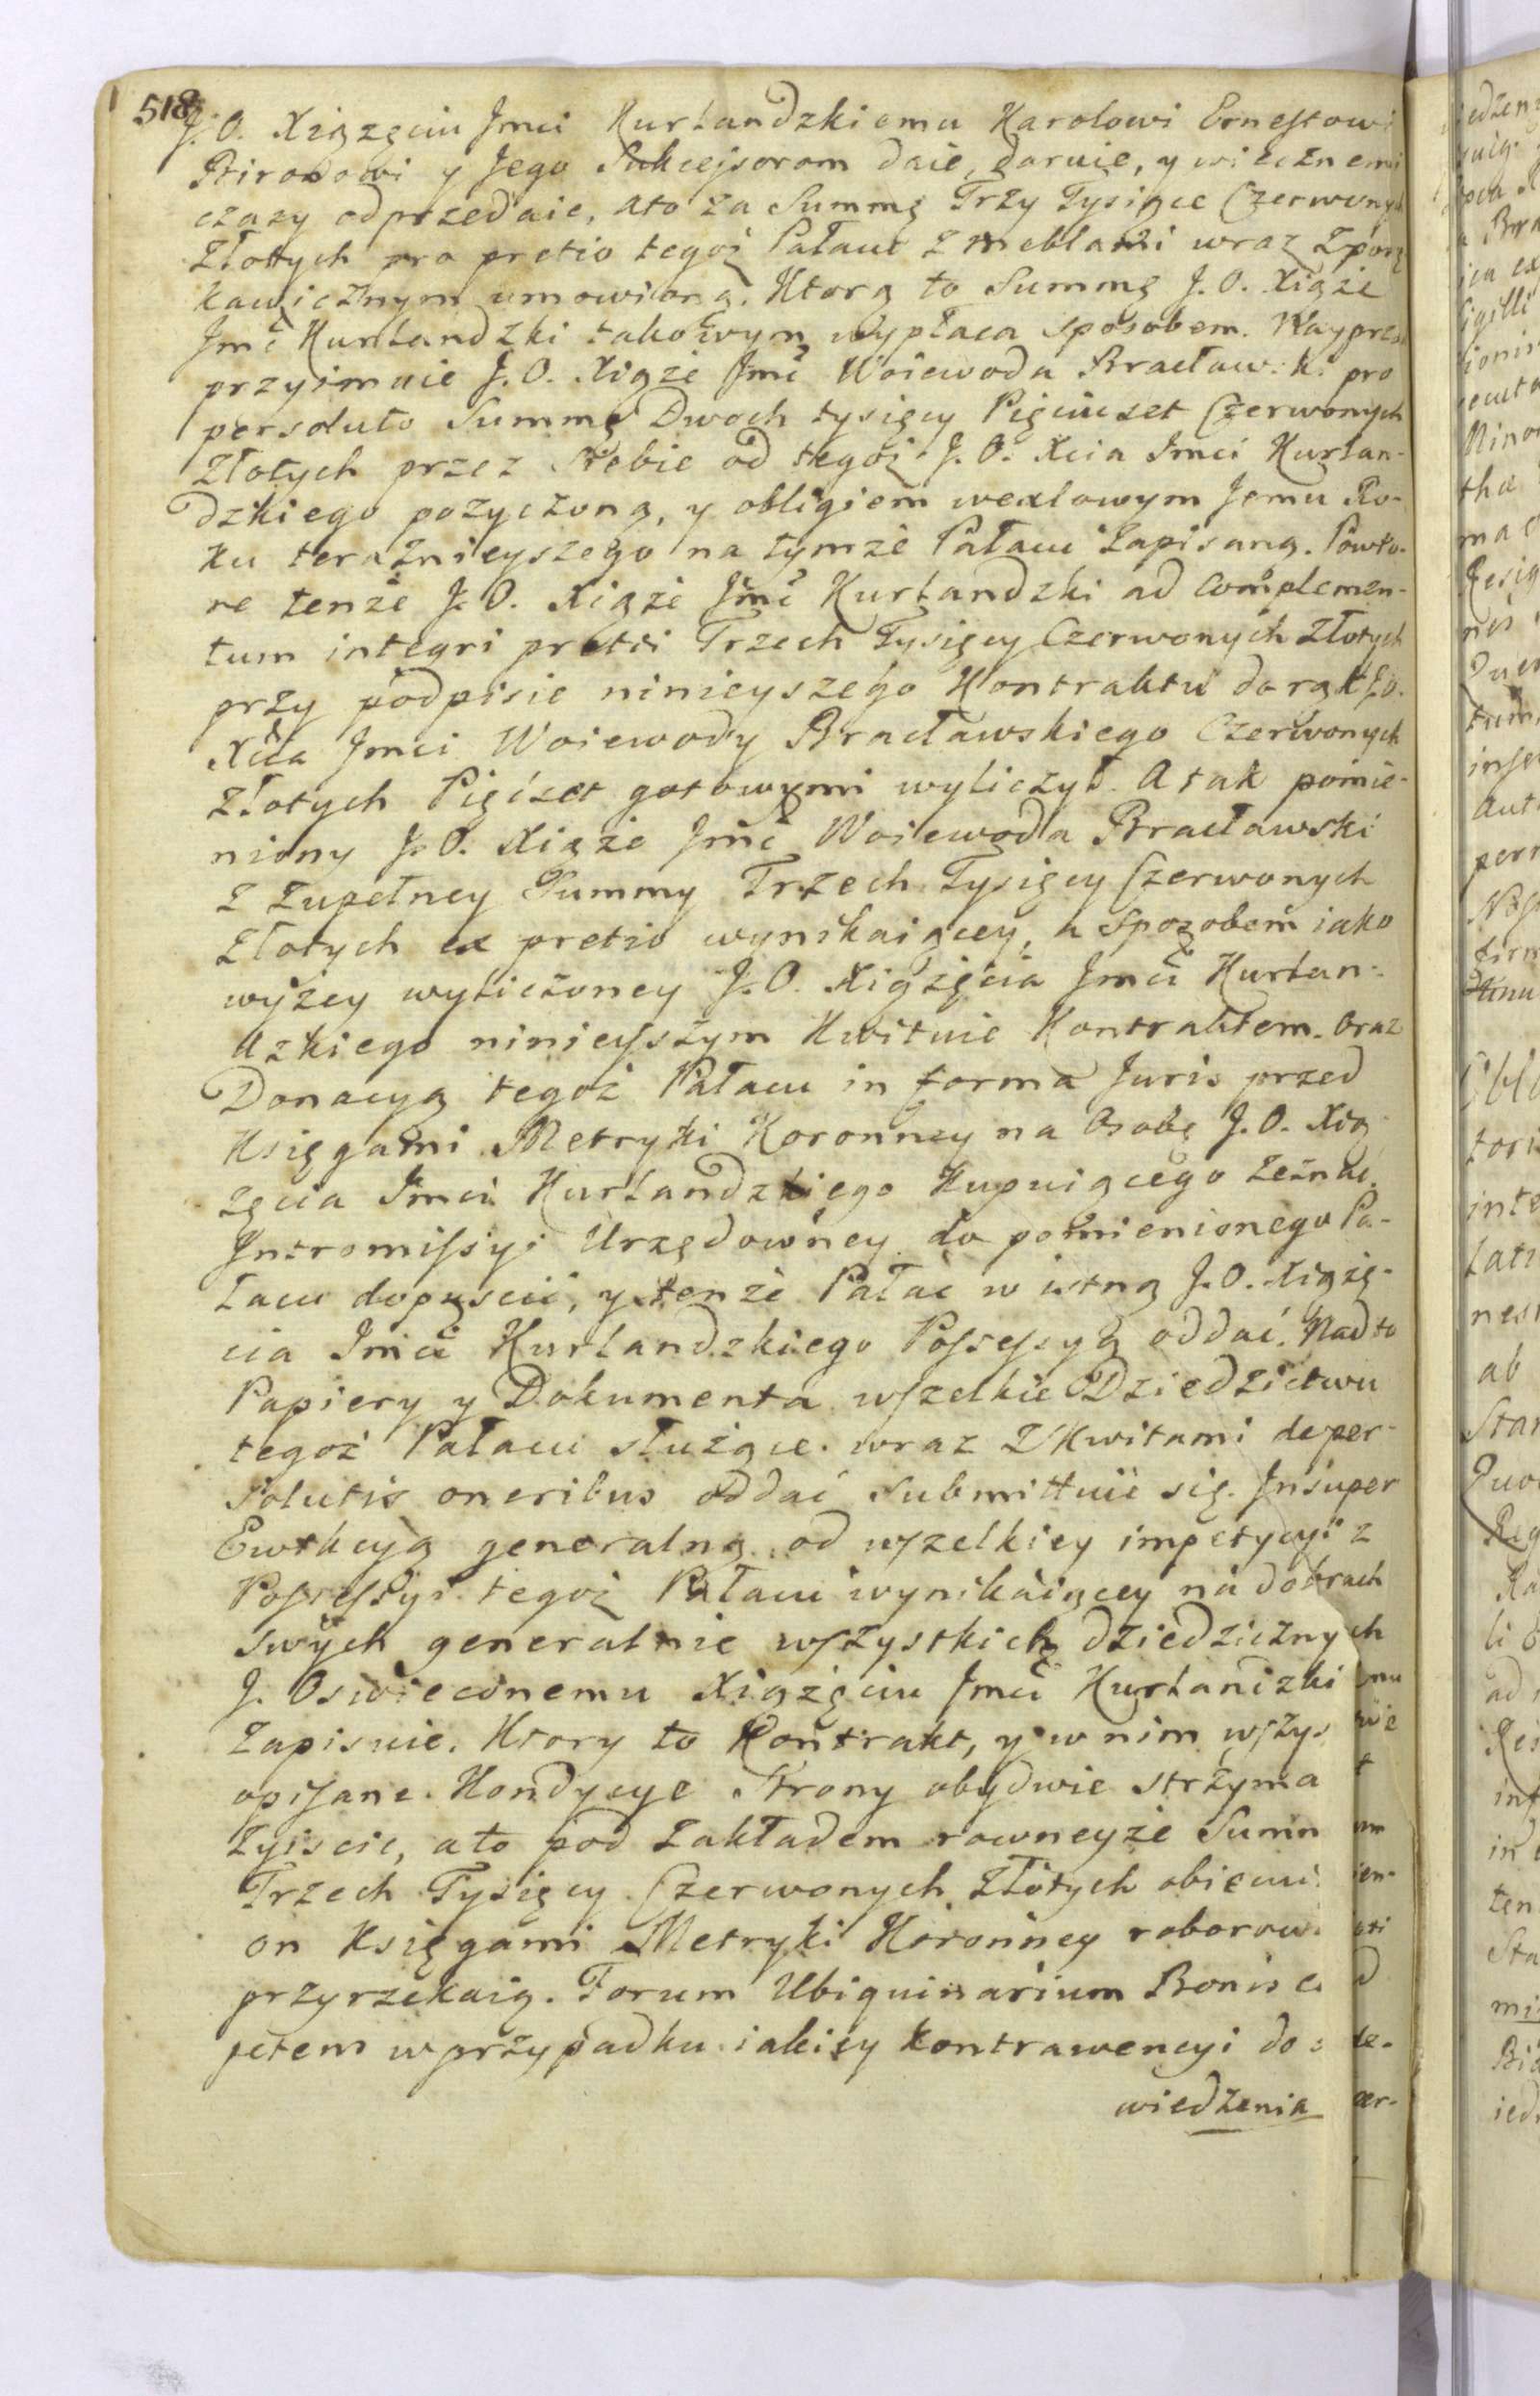 518
J. O. Xiązęciu Jmci Kurlandzkiemu Karolowi Ernestowi
Bironowi y Jego Sukcessorom daie, daruie, y wiecznemi
czasy odprzedaie, ato za Summę Trzy Tysiące Czerwonych
Złotych pro pretio tegoż Pałacu z meblami wraz
kawicznym umowioną. Ktorą to Summę J. O. Xiąże
Jmć Kurlandzki takowym wypłaca sposobem. Nayprzod
przyimuie J. O. Xiąże Jmć Woiewoda Bracław: k: pro
persoluto Summę Dwoch tysięcy Pięciuset Czerwonych
Złotych przez Siebie od tegoż J. O. Xcia Jmci Kurlan-
dzkiego pożyczoną, y obligiem wexlowym Jemu Ro-
ku teraznieyszego na tymże Pałacu Zapisaną. Powto-
re tenże J. O. Xiąże Jmć Kurlandzki ad complemen-
tum integri pretii Trzech Tysięcy Czerwonych Złotych
przy podpisie ninieyszego Kontraktu do rąk J. O.
Xcia Jmci Woiewody Bracławskiego Czerwonych
Złotych Pięćset gotowymi wyliczył. A tak pomie-
niony J. O. Xiąże Jmć Woiewoda Bracławski
z zupełney Summy Trzech Tysięcy Czerwonych
Złotych ex pretio wynikaiącey, a sposobem iako
wyżey wyliczoney J. O. Xiążęcia Jmci Kurlan-
dzkiego ninieyszym Kwituie Kontraktem. Oraz
Donacyą tegoż Pałacu in forma Juris przed
Księgami Metryki Koronney na Osobę J. O. Xią-
zęcia Jmci Kurlandzkiego Kupuiącego zeznać.
Intromissyi Urzędowney do pomienionego Pa-
łacu dopuscić, y tenże Pałac w istną J. O. Xiążę-
cia Jmci Kurlandzkiego Possessyą oddać. Nadto
Papiery y Dokumenta wszelkie Dziedzictwu
tegoż Pałacu służące. wraz z Kwitami de per-
solutis oneribus oddać submittuie się. Insuper
Ewikcyą generalną od wszelkiey impetycyi z
Possessyi tegoż Pałacu wynikaiącey na dobrach
swych generalnie wszystkich dziedzicznych
J. Oswieconemu Xiążęciu Jmci Kurlandzki
Zapisuie. Ktory to Kontrakt, y w nim wszys
opisane. Kondycye Strony obydwie strzyma
żyiscić, ato pod Zakładem rowneyże Summ
Trzech Tysięcy Czerwonych Złotych obiecui
on Księgami Metryki Koronney roborow
przyrzekaią. Forum Ubiquinarium Bonis c
petens w przypadku iakiey kontrawencyi do
wiedzenia